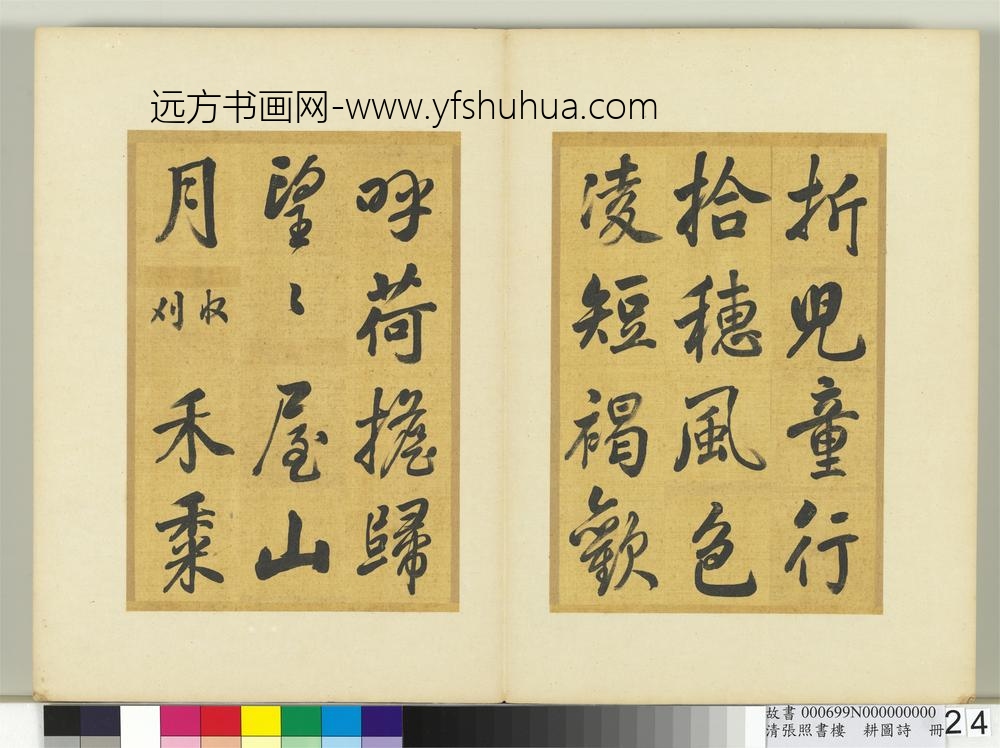 远方书画网-www.yfshuhua.com
折兒童行
拾穗風色
凌短褐歡
呼荷擔歸
望〻屋山
月 收刈 禾黍
故書 000699N000000000
清張照書樓 耕圖詩 冊
24